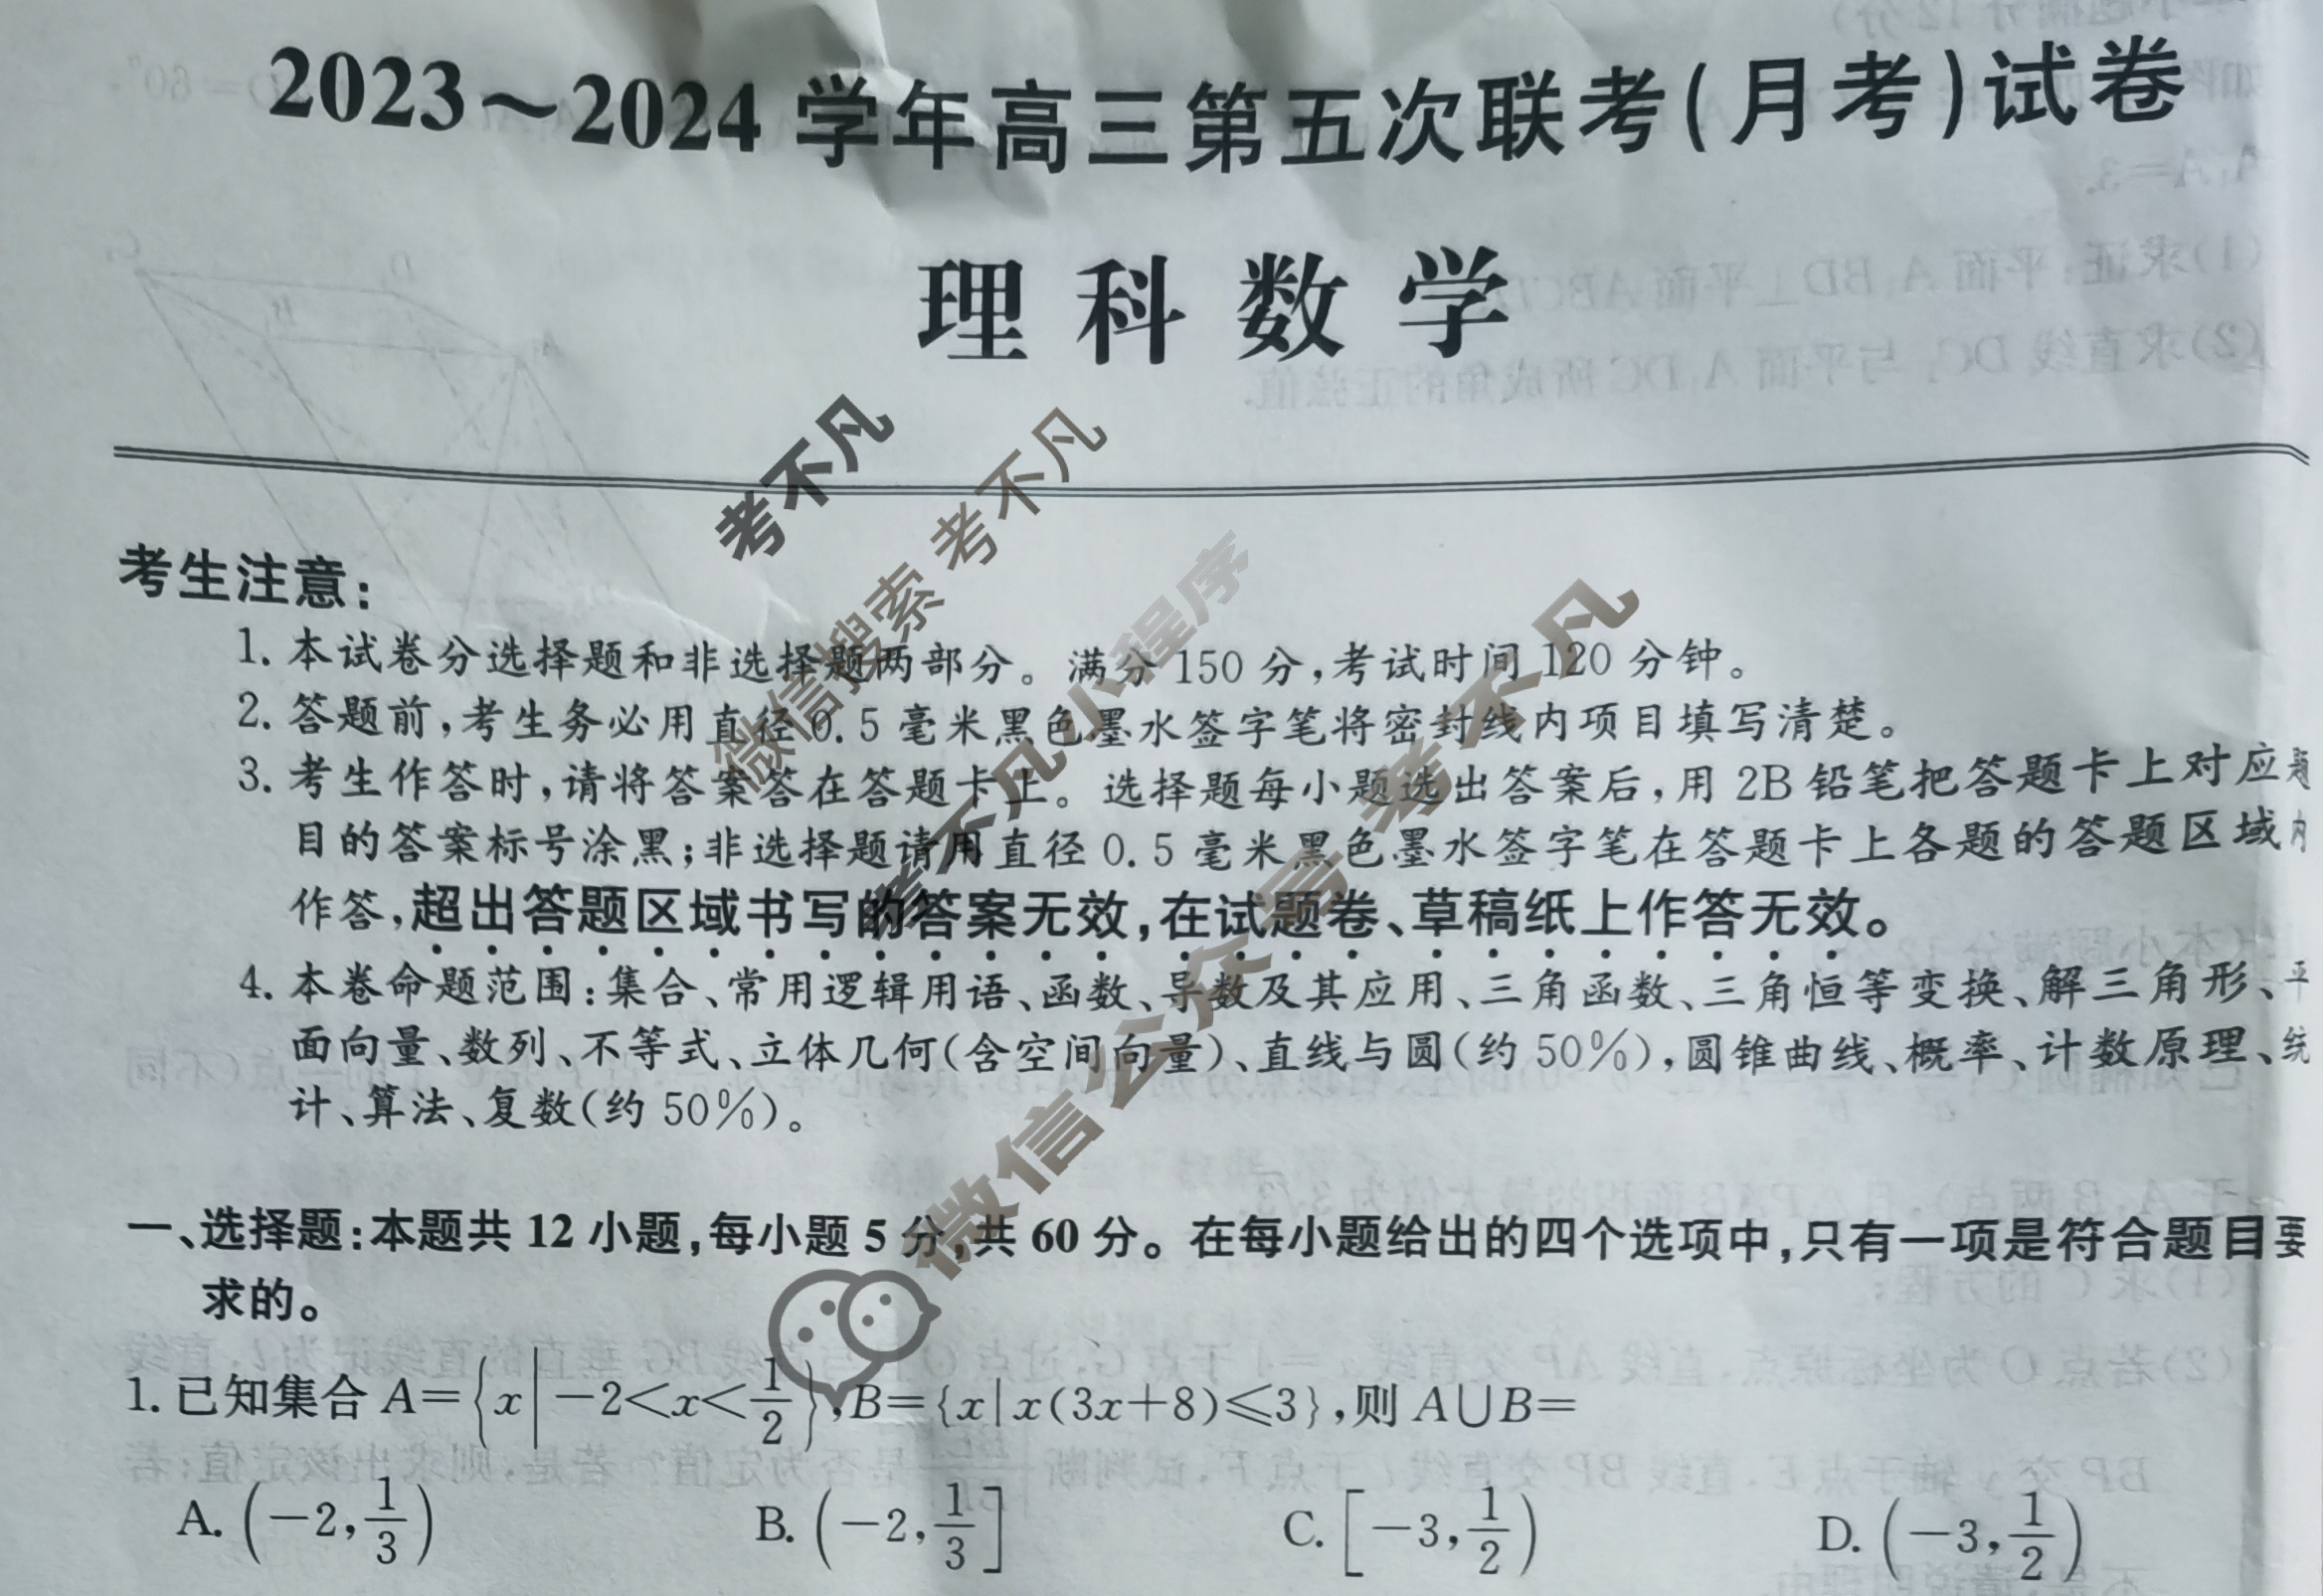 2023～2024学年高三第五次联考(月考)试卷
理科数学
考生注意:
1. 本试卷分选择题和非选择题两部分。满分 150 分,考试时间 120 分钟。
2. 答题前,考生务必用直径 0.5 毫米黑色墨水签字笔将密封线内项目填写清楚。
3. 考生作答时,请将答案答在答题卡上。选择题每小题选出答案后,用 2B 铅笔把答题卡上对应题
目的答案标号涂黑;非选择题请用直径 0.5 毫米黑色墨水签字笔在答题卡上各题的答题区域内
作答,超出答题区域书写的答案无效,在试题卷、草稿纸上作答无效。
4. 本卷命题范围:集合、常用逻辑用语、函数、导数及其应用、三角函数、三角恒等变换、解三角形、平
面向量、数列、不等式、立体几何(含空间向量)、直线与圆(约 50%),圆锥曲线、概率、计数原理、统
计、算法、复数(约 50%)。
一、选择题:本题共 12 小题,每小题 5 分,共 60 分。在每小题给出的四个选项中,只有一项是符合题目要
求的。
1. 已知集合 A={x|-2<x<1/2},B={x|x(3x+8)≤3},则 A∪B=
A. (-2,1/3) B. (-2,1/3] C. [-3,1/2) D. (-3,1/2)
考不凡
微信搜索 考不凡
考不凡小程序
微信公众号 考不凡